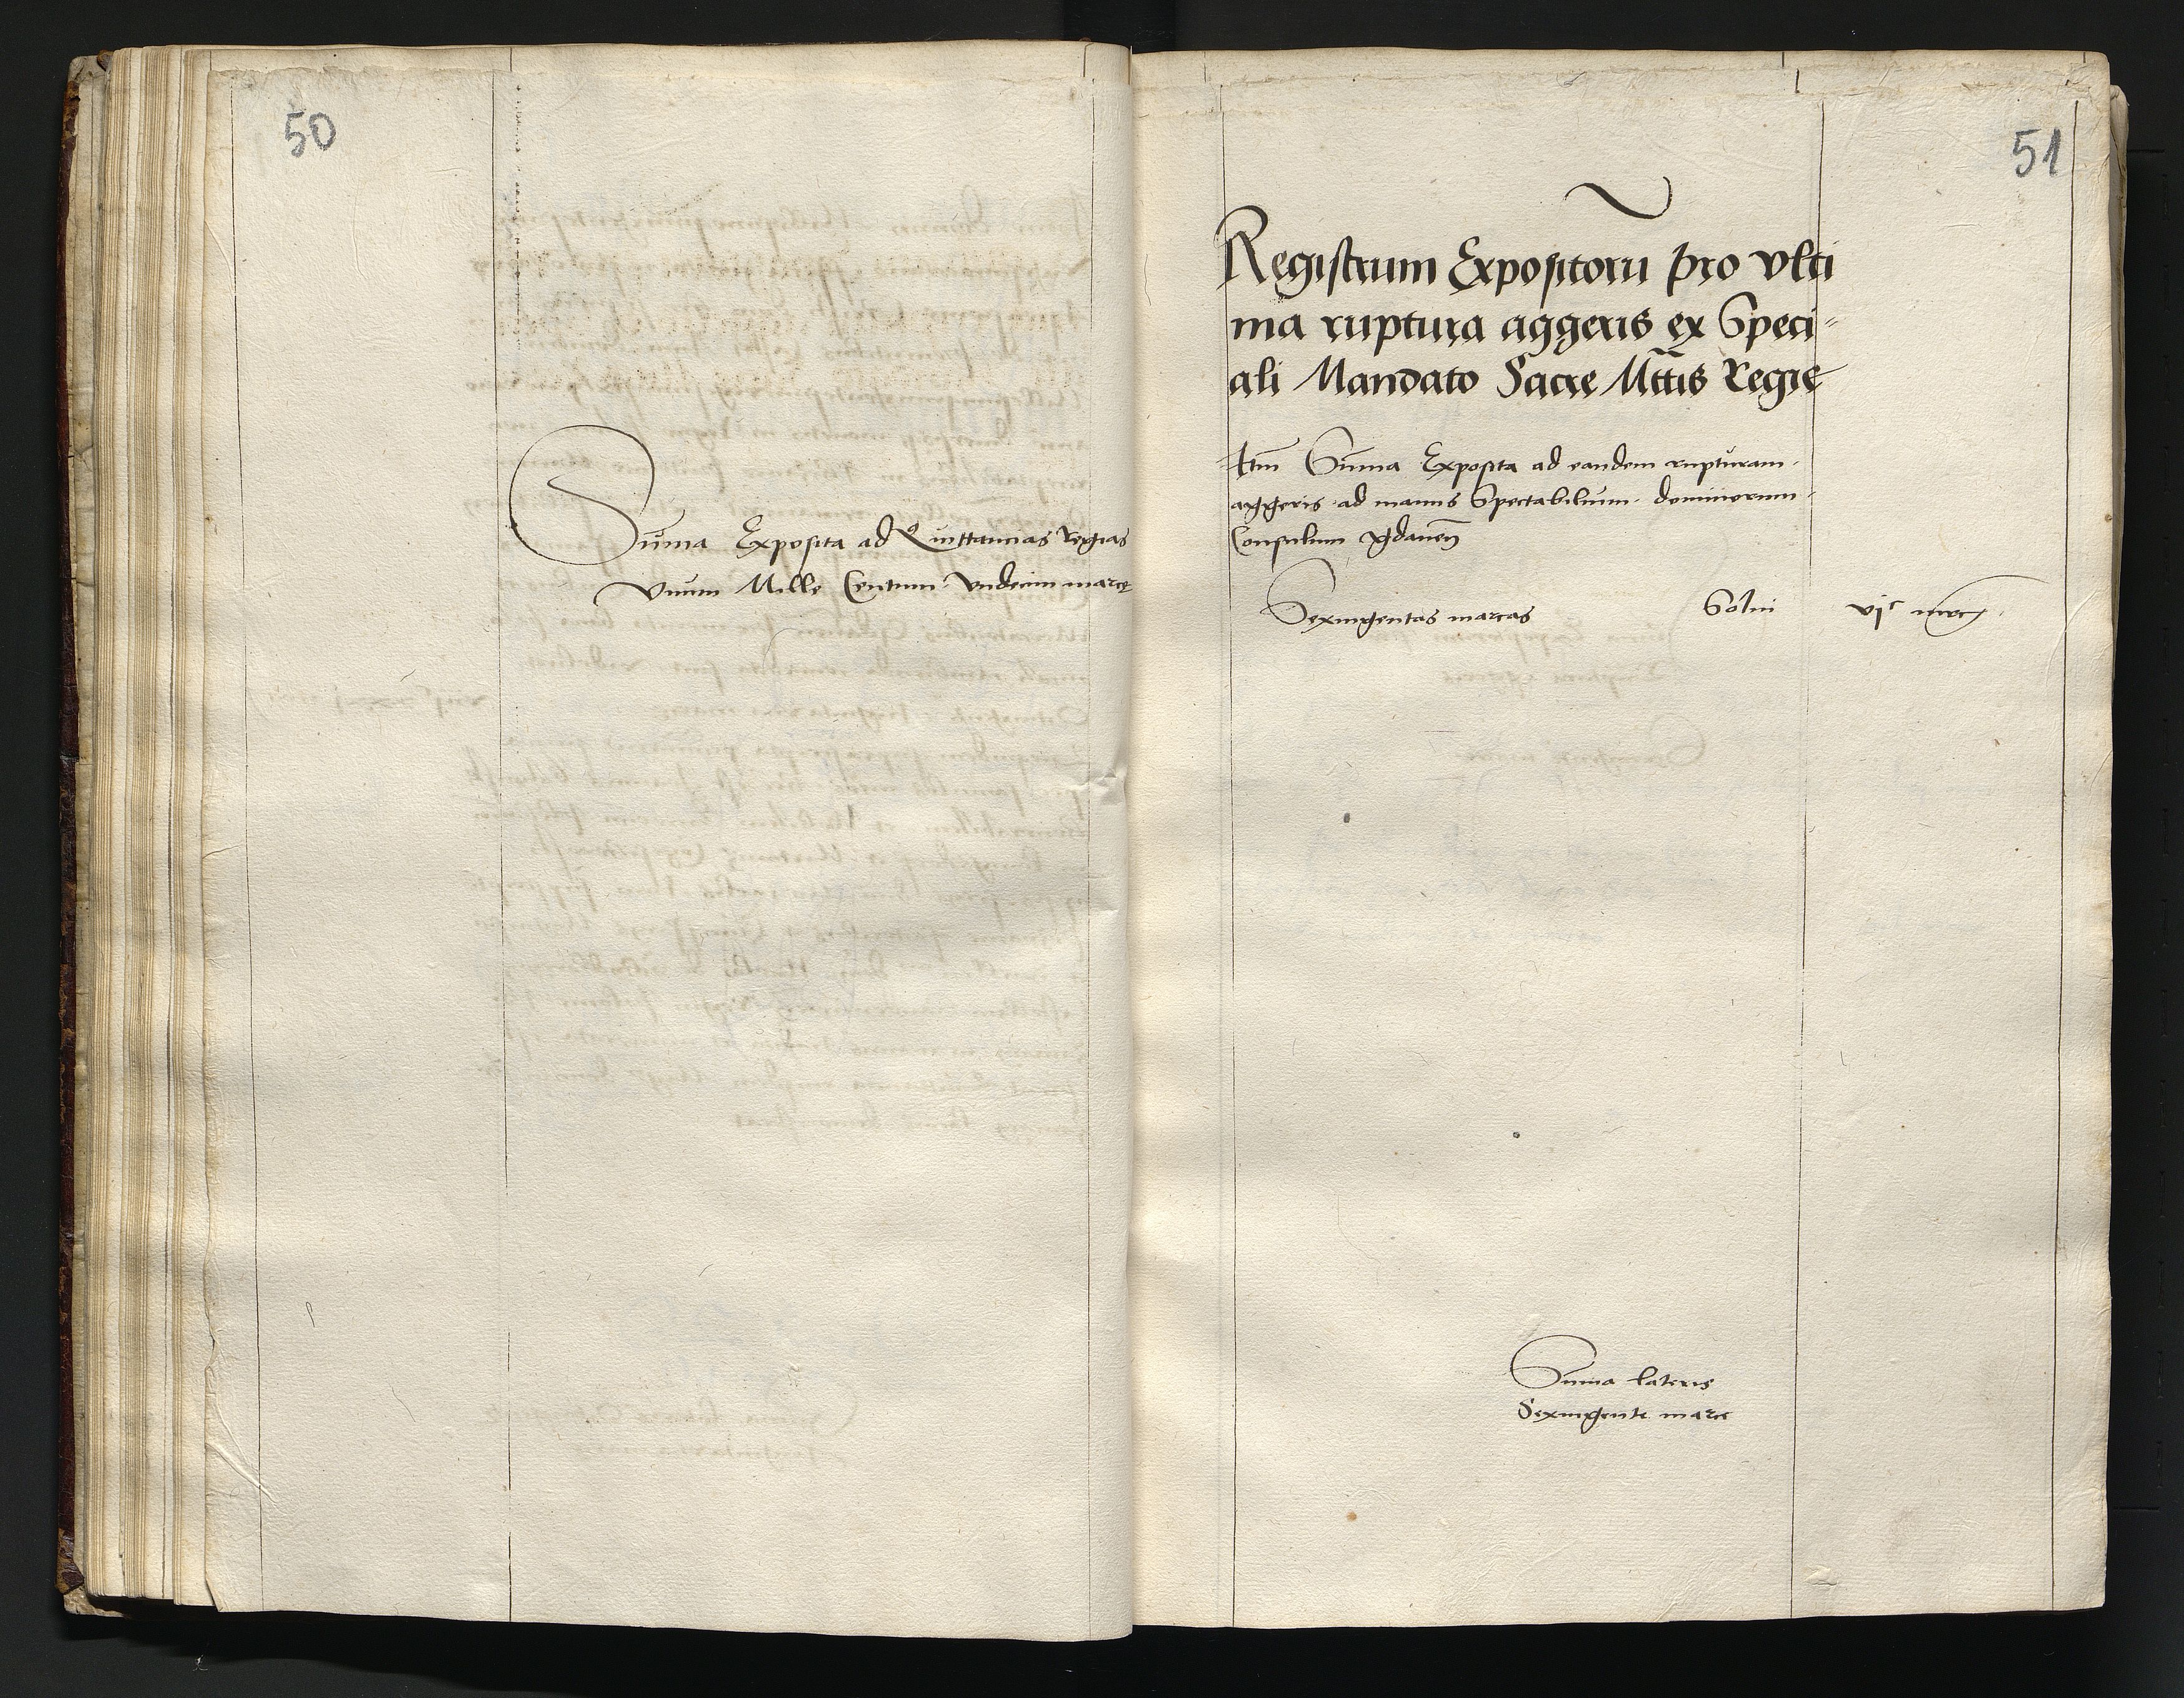 50
Suma Exposita ad Quittancias Regias
Vnum Mille Centum Vndecim marce
51
Registrum Expositoru pro vlti
ma ruptura aggeris ex Speci=
ali Mandato Sacre Mttis Regie
Itm Suma Exposita ad eandem rupturam
aggeris ad manus Spectabilium dominorum
Consulum gdanen
Sexingentas marcas Solui vjc mrc
Suma lateris
Sexingente marce